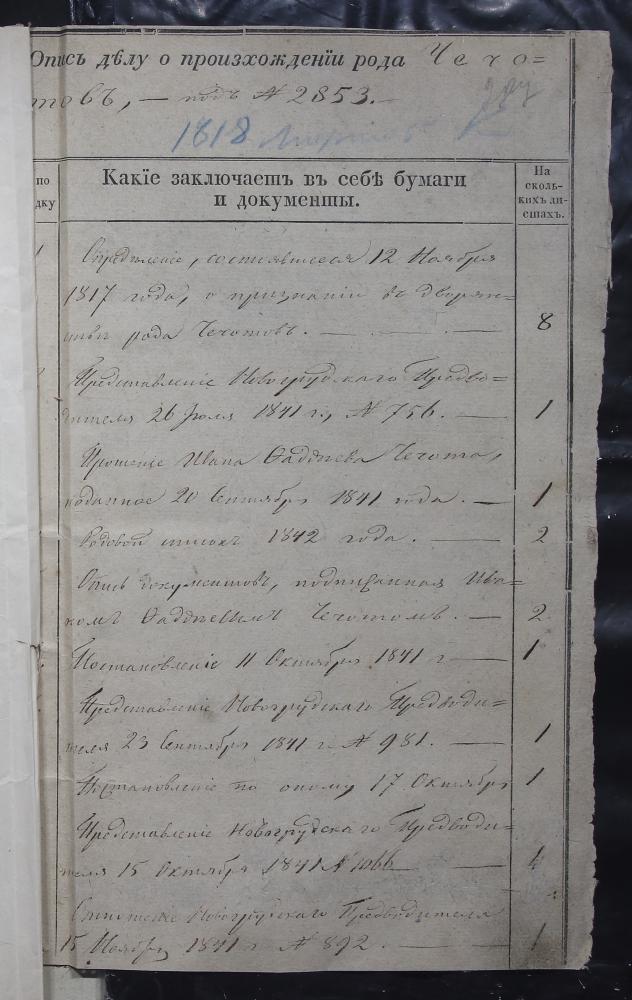 Опись дѣлу о произхожденіи рода Чечо=
товъ, — подъ № 2853. —
1818
по
дку
Какіе заключаетъ въ себѣ бумаги
и документы.
На
сколь-
кихъ ли-
стахъ.
Опредѣленіе, состоявшееся 12 Ноября
1817 года, о признаніи въ дворян=
ствѣ рода Чечотовъ. — — — 8
Представленіе Новогрудскаго Предво=
дителя 26 Іюля 1841 г., № 756. — 1
Прошеніе Ивана Фаддѣева Чечота,
поданное 20 Сентября 1841 года. — 1
Родовой списокъ 1842 года. — 2
Опись документовъ, подписанная Ива=
номъ Фаддѣевымъ Чечотомъ. — 2
Постановленіе 11 Октября 1841 г. — 1
Представленіе Новогрудскаго Предводи=
теля 23 Сентября 1841 г. № 981. — 1
Постановленіе по оному 17 Октября 1
Представленіе Новогрудскаго Предводи=
теля 15 Октября 1841 № 1066 — 4
Новогрудскаго Предводителя
15 Ноября 1841 г. № 892. — — 1